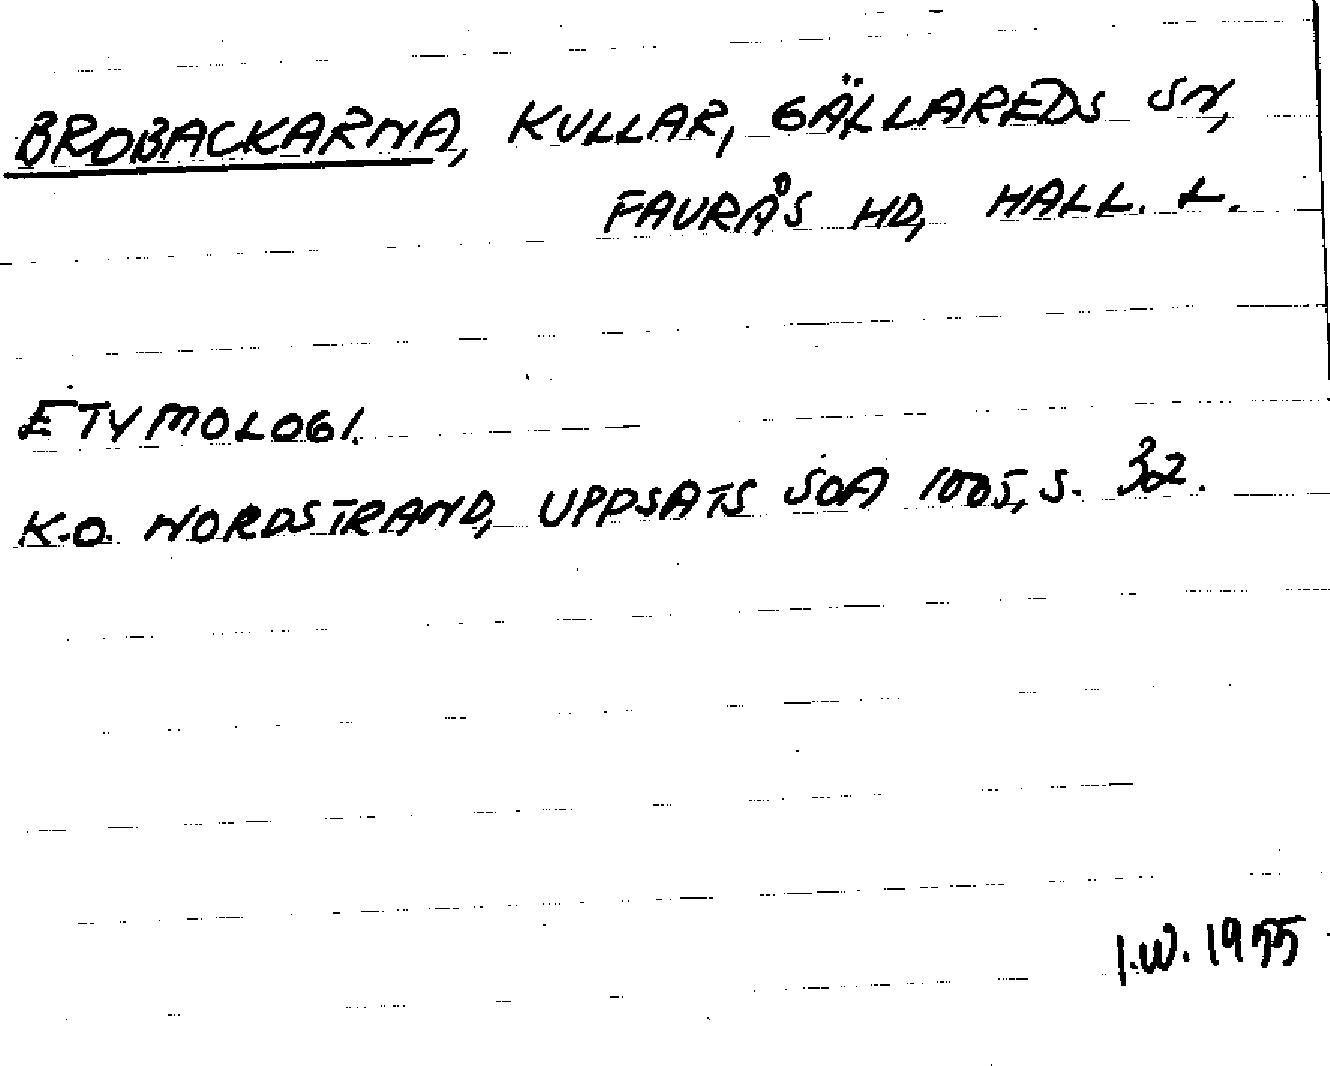 BROBACKARNA, KULLAR, GÄLLAREDS SN,
FAURÅS HD, HALL. L.
ETYMOLOGI.
K.O. NORDSTRAND, UPPSATS SOA 1005, S. 32.
I.W. 1955